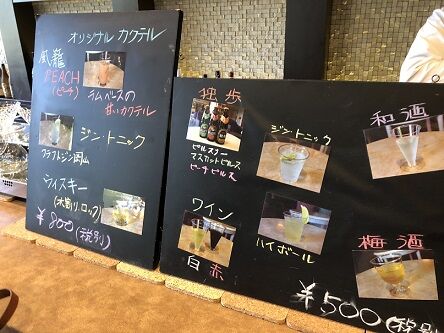 オリジナルカクテル
風龍
PEACH
(ピーチ)
ラムベースの
甘いカクテル
ジン・トニック
クラフトジン岡山
ウィスキー
(水割り.ロック)
¥800(税別)
独歩
ピルスナー
マスカットピルス
ピーチピルス
ジン・トニック
和酒
ワイン
白 赤
ハイボール
梅酒
¥500(税別)